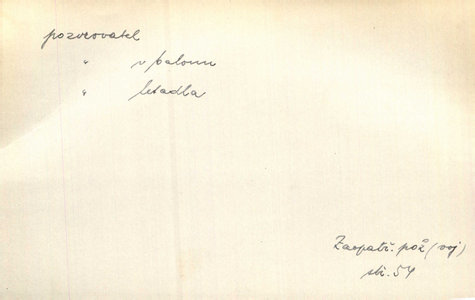 pozorovatel
" v balonu
" letadla
Zaopatř. pož (voj)
str. 54